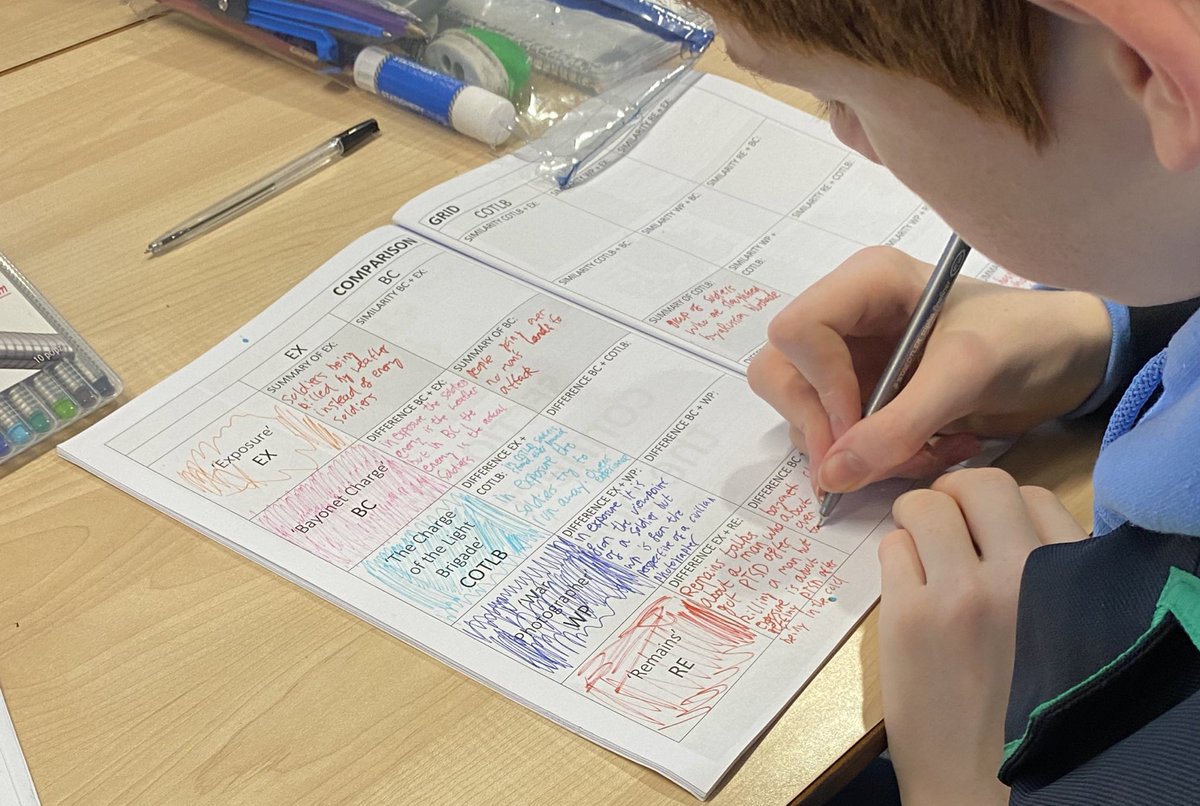 COMPARISON
GRID
EX
BC
COTLB
SUMMARY OF EX:
soldiers being
killed by weather
instead of enemy
soldiers
SIMILARITY BC + EX:
SIMILARITY COTLB + EX:
SIMILARITY WP + EX
SIMILARITY RE + EX:
'Exposure'
EX
'Bayonet Charge'
BC
DIFFERENCE BC + EX:
in exposure the soldiers
enemy is the weather
but in BC the
enemy is the actual
soldiers
SUMMARY OF BC:
people going over
no mans land to
attack
SIMILARITY COTLB + BC:
SIMILARITY WP + BC:
SIMILARITY RE + BC:
'The Charge
of the Light
Brigade'
COTLB
DIFFERENCE EX +
COTLB:
in exposure the
soldiers try to
run away
DIFFERENCE BC + COTLB:
SUMMARY OF COTLB:
group of soldiers
who are
SIMILARITY WP +
COTLB:
SIMILARITY RE + COTLB:
'War
Photographer'
WP
DIFFERENCE EX + WP:
in exposure it is
from the viewpoint
of a soldier but
WP is from the
perspective of a civilian
photographer
DIFFERENCE BC + WP:
'Remains'
RE
DIFFERENCE EX + RE:
Remains talks
about a man who
got PTSD after
killing a man but
is about
PTSD after
being in the cold
DIFFERENCE BC +
bayonet
10